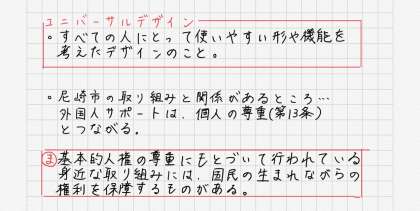 ユニバーサルデザイン
・すべての人にとって使いやすい形や機能を
考えたデザインのこと。
・尼崎市の取り組みと関係があるところ…
外国人サポートは、個人の尊重(第13条)
とつながる。
ま 基本的人権の尊重にもとづいて行われている
身近な取り組みには、国民の生まれながらの
権利を保障するものがある。